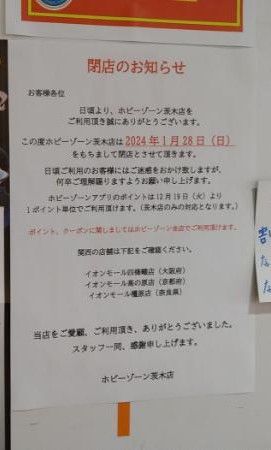 閉店のお知らせ
お客様各位
日頃より、ホビーゾーン茨木店を
ご利用頂き誠にありがとうございます。
この度ホビーゾーン茨木店は 2024 年 1 月 28 日（日）
をもちまして閉店とさせて頂きます。
日頃ご利用のお客様にはご迷惑をおかけ致しますが、
何卒ご理解賜りますようお願い申し上げます。
ホビーゾーンアプリのポイントは 12 月 19 日（火）より
1 ポイント単位でご利用頂けます。（茨木店のみの対応となります。）
ポイント、クーポンに関しましてはホビーゾーン全店でご利用頂けます。
関西の店舗は下記をご確認ください。
イオンモール四條畷店（大阪府）
イオンモール高の原店（京都府）
イオンモール橿原店（奈良県）
当店をご愛顧、ご利用頂き、ありがとうございました。
スタッフ一同、感謝申し上げます。
ホビーゾーン茨木店